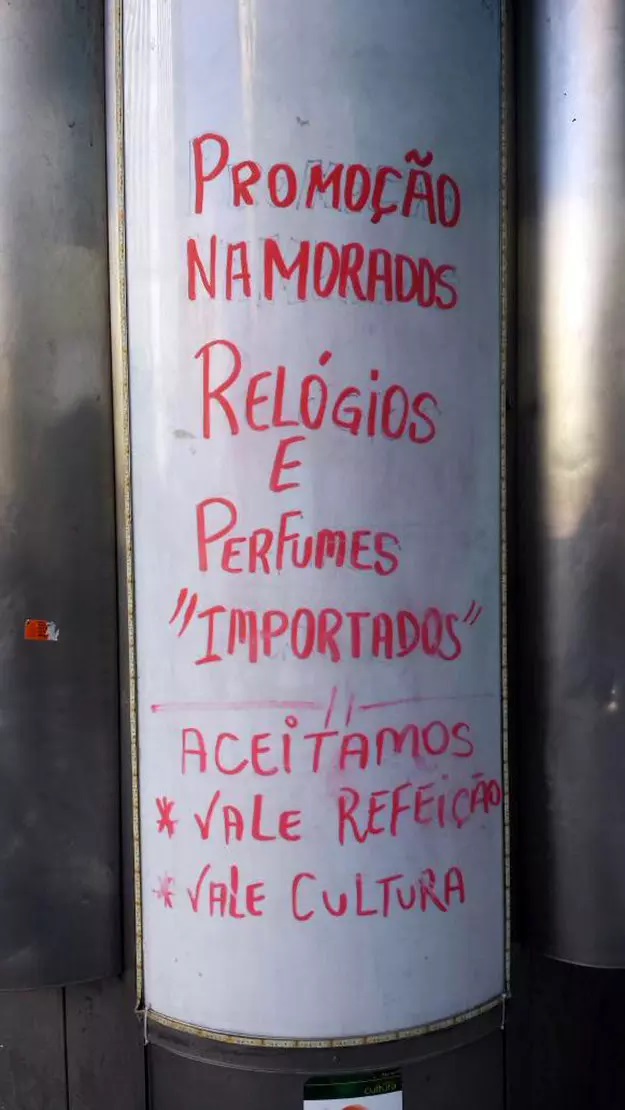 PROMOÇÃO
NAMORADOS
RELÓGIOS
E
PERFUMES
"IMPORTADOS"
ACEITAMOS
* VALE REFEIÇÃO
* VALE CULTURA
cultura